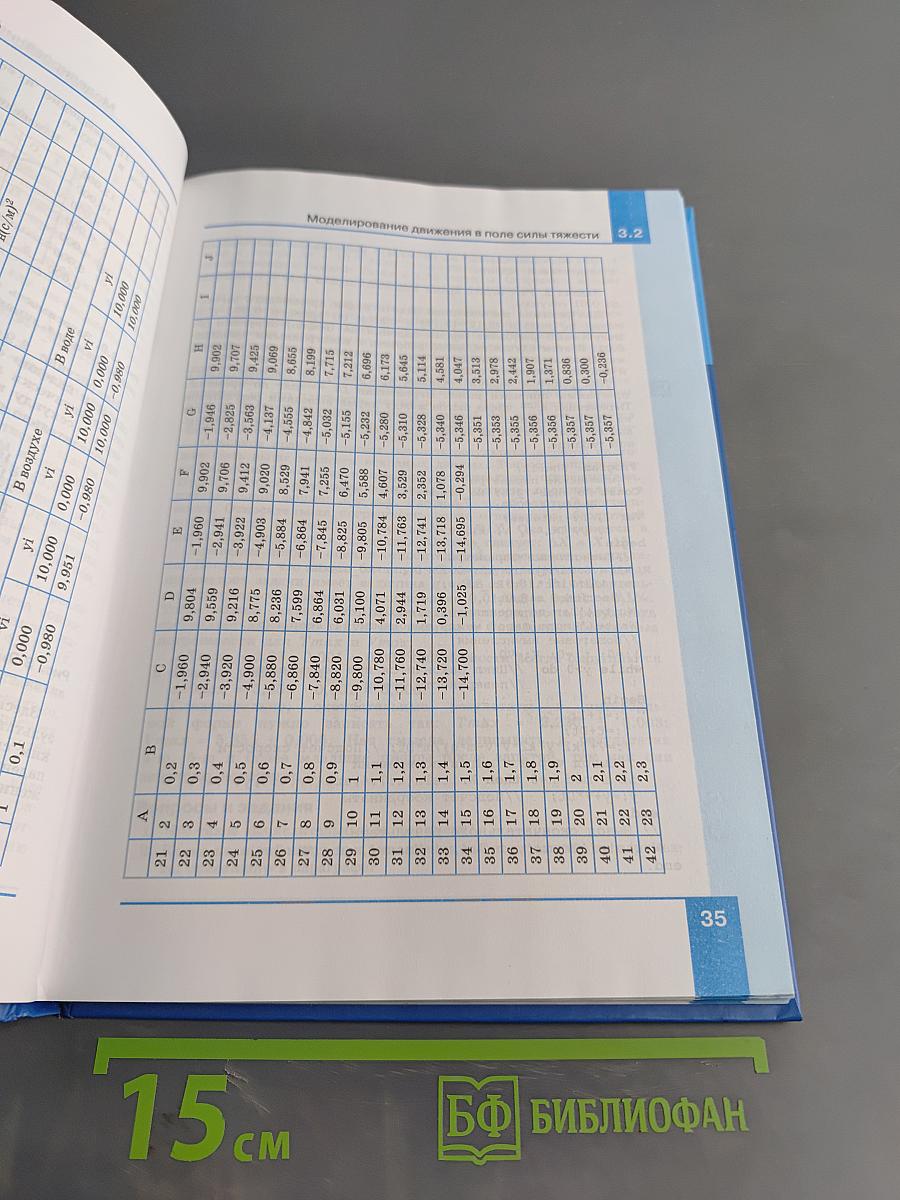 Моделирование движения в поле силы тяжести 3.2
A B C D E F G H I J
21 2 0,2 −1,960 9,804 −1,960 9,902 −1,946 9,902
22 3 0,3 −2,940 9,559 −2,941 9,706 −2,825 9,707
23 4 0,4 −3,920 9,216 −3,922 9,412 −3,563 9,425
24 5 0,5 −4,900 8,775 −4,903 9,020 −4,137 9,069
25 6 0,6 −5,880 8,236 −5,884 8,529 −4,555 8,655
26 7 0,7 −6,860 7,599 −6,864 7,941 −4,842 8,199
27 8 0,8 −7,840 6,864 −7,845 7,255 −5,032 7,715
28 9 0,9 −8,820 6,031 −8,825 6,470 −5,155 7,212
29 10 1 −9,800 5,100 −9,805 5,588 −5,232 6,696
30 11 1,1 −10,780 4,071 −10,784 4,607 −5,280 6,173
31 12 1,2 −11,760 2,944 −11,763 3,529 −5,310 5,645
32 13 1,3 −12,740 1,719 −12,741 2,352 −5,328 5,114
33 14 1,4 −13,720 0,396 −13,718 1,078 −5,340 4,581
34 15 1,5 −14,700 −1,025 −14,695 −0,294 −5,346 4,047
35 16 1,6 −5,351 3,513
36 17 1,7 −5,353 2,978
37 18 1,8 −5,355 2,442
38 19 1,9 −5,356 1,907
39 20 2 −5,356 1,371
40 21 2,1 −5,357 0,836
41 22 2,2 −5,357 0,300
42 23 2,3 −5,357 −0,236
35
В воздухе В воде
vi yi vi yi vi yi
0,000 10,000 0,000 10,000 0,000 10,000
1 0,1 −0,980 9,951 −0,980 10,000 −0,980 10,000
15 см
БФ БИБЛИОФАН